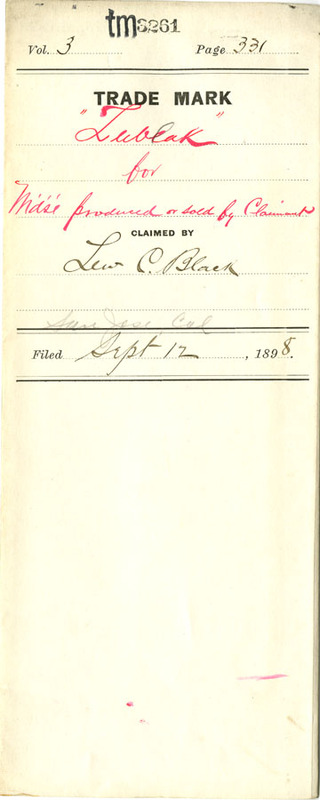 tm3261
Vol. 3 Page 331
TRADE MARK
"Lubeak"
for
Mdse produced or sold by Claimant
CLAIMED BY
Lew C. Black
San Jose, Cal
Filed Sept 12, 1898.